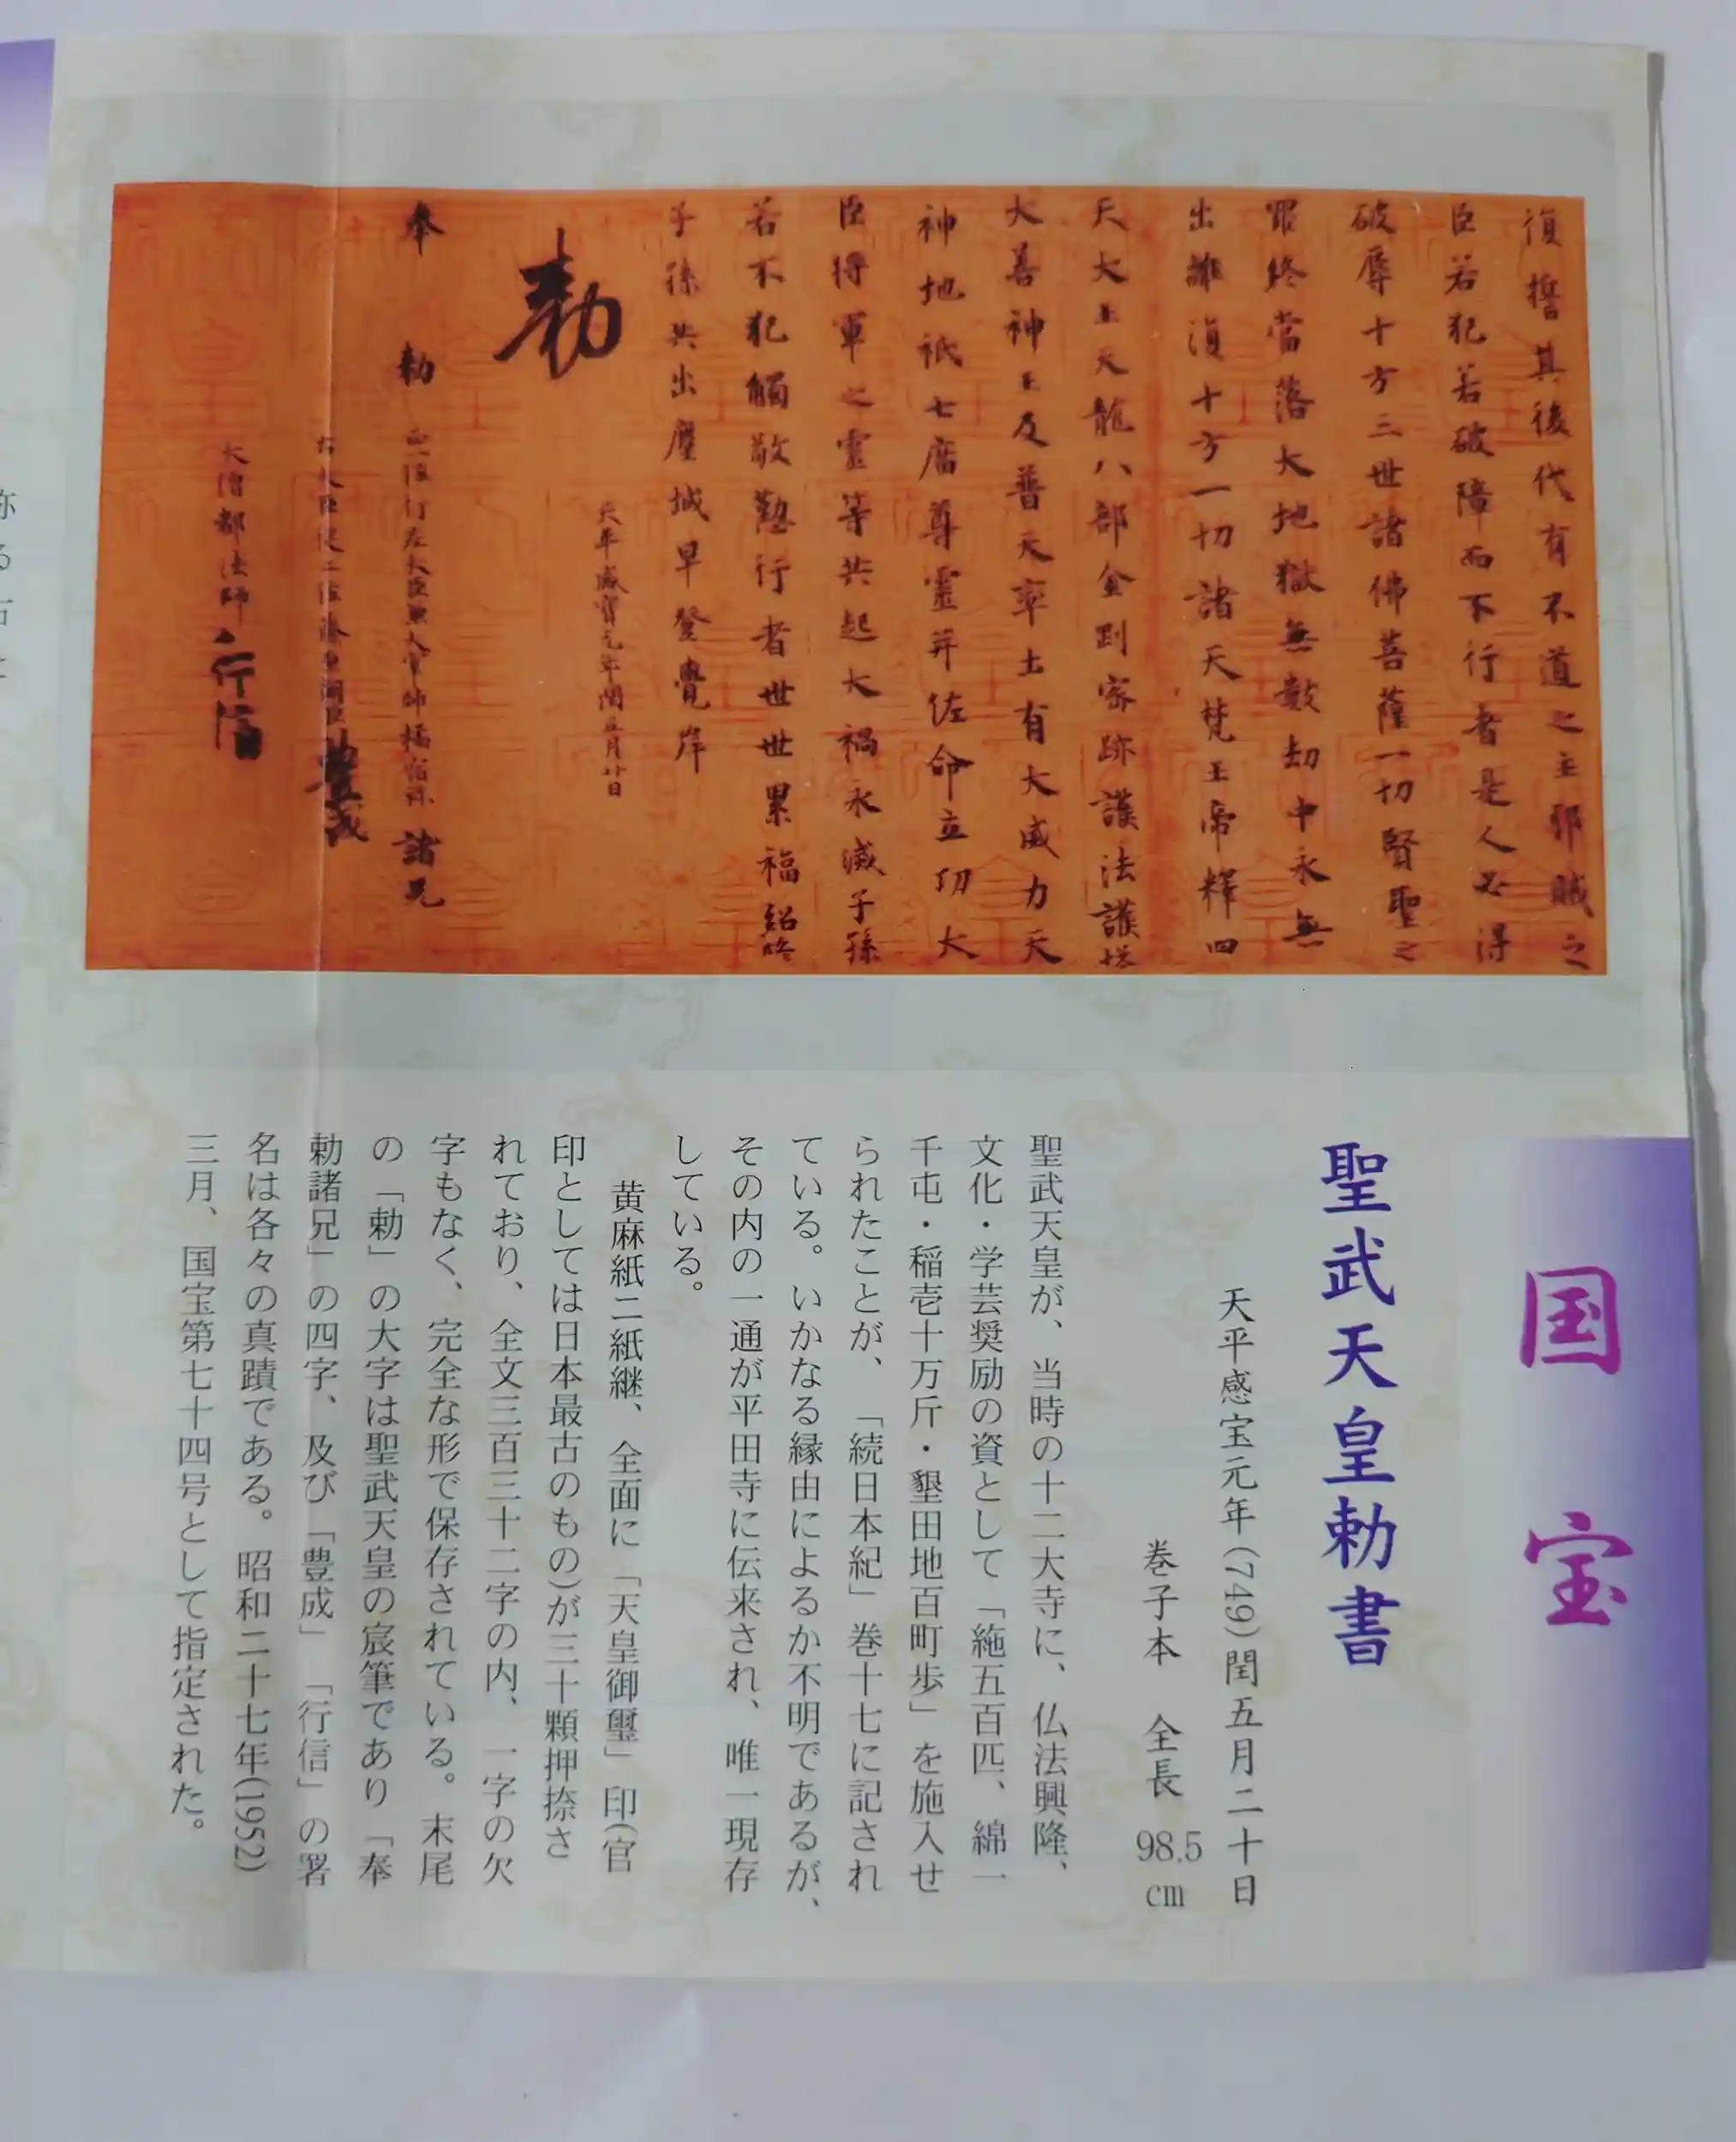 復誓其後代有不道之主邪賊之
臣若犯若破障而不行者是人必得
破辱十方三世諸佛菩薩一切賢聖之
罪終當落大地獄無數劫中永無
出離復十方一切諸天梵王帝釋四
天大王天龍八部金剛密跡護法護塔
大善神王及普天率土有大威力天
神地祇七廟尊霊并佐命立功大
臣将軍之霊等共起大禍永滅子孫
若不犯觸敬懃行者世世累福紹隆
子孫共出塵城早登覺岸
天平感寶元年閏五月廿日
勅
奉 勅 正一位行左大臣兼大宰帥橘宿祢 諸兄
右大臣従二位藤原朝臣 豊成
大僧都法師 行信
国宝
聖武天皇勅書
天平感宝元年(749)閏五月二十日
巻子本 全長 98.5cm
聖武天皇が、当時の十二大寺に、仏法興隆、
文化・学芸奨励の資として「絁五百匹、綿一
千屯・稲壱十万斤・墾田地百町歩」を施入せ
られたことが、「続日本紀」巻十七に記され
ている。いかなる縁由によるか不明であるが、
その内の一通が平田寺に伝来され、唯一現存
している。
黄麻紙二紙継、全面に「天皇御璽」印(官
印としては日本最古のもの)が三十顆押捺さ
れており、全文三百三十二字の内、一字の欠
字もなく、完全な形で保存されている。末尾
の「勅」の大字は聖武天皇の宸筆であり「奉
勅諸兄」の四字、及び「豊成」「行信」の署
名は各々の真蹟である。昭和二十七年(1952)
三月、国宝第七十四号として指定された。